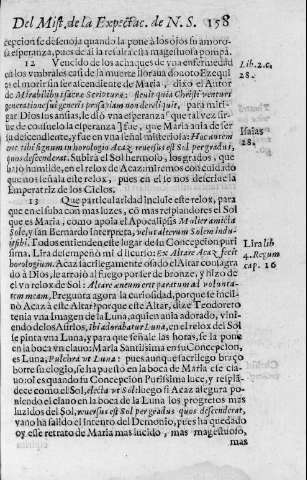 Del Mist. de la Expectac. de N. S. 158
cepcion se desenoja quando la pone à los ojos su amoro-
sa esperança, pues de ài la resalta esta magestuosa pompa.
12 Vencido de los achaques de vna enfermedad
en los vmbrales casi de la muerte lloraua deuoto Ezequi
el morir sin ser ascendiente de Maria, dixo el Autor
de Mirabilibus sacræ Scripturæ:
generationes sui generis prosapiam non dereliquit, para miti-
gar Dios sus ansias, le diò vna esperança que tal vez sir-
ue de consuelo la esperança) fue, que Maria auia de ser
su descendiente, y fue en vna señal misteriosa: Hac autem
erit tibi signum in horologio Acaz, reuersus est Sol per gradus,
quos descenderat. Subirà el Sol hermoso, los grados, que
baxò humilde, en el relox de Acaz miremos con cuidado
que nos señala este relox, pues en èl se nos descriue la
Emperatriz de los Cielos.
13 Que particularidad incluie este relox, para
que en èl suba con mas luzes, cõ mas resplandores el Sol
que es Maria, como apoya el Apocalipsis Mulier amicta
Sole, y san Bernardo Interpreta, velut alterum Solem indu-
isti bi. Todos entienden este lugar de su Concepcion puri
sima. Lira desempeñò mi discurso: Ex Altare Acaz fecit
horologium. Acaz sacrilegamente osado el Altar consagra
do à Dios, le arrojò al fuego por ser de bronze, y hizo de
èl vn relox de Sol: Altare æneum erit paratum ad volunta-
tem meam. Pregunta agora la curiosidad, porque se incli-
nò Acaz à este Altar? porque este Altar, dize Teodoreto
tenia vna Imagen de la Luna, aquien auia adorado, vini-
endo de los Asirios, ibi adorabatur Luna, en el relox del Sol
se pinta vna Luna, y para que señale las horas, se la pone
en la boca vn clauo: Maria Santissima en su Concepcion,
es Luna, Pulchra vt Luna: pues aunque sacrilego braço
borre su elogio, se ha puesto en la boca de Maria esse cla
uo: èl es quando su Concepcion Purissima luze, y resplã-
dece como el Sol, electa vt Sol: luego si Acaz assegura po-
niendo el clauo en la boca de la Luna los progresos mas
luzidos del Sol, reuersus est Sol per gradus quos descenderat,
vano ha salido el intento del Demonio, pues ha quedado
oy esse retrato de Maria mas lucido, mas magestuoso,
mas
Lib. 2. c.
28.
Isaias
28.
Lira lib
4. Regum
cap. 16